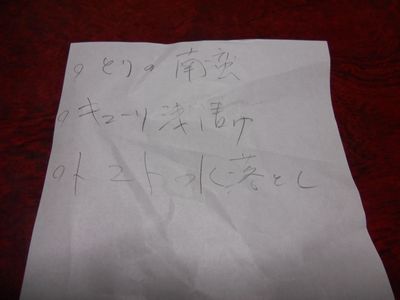 ○とりの南蛮
○キューリ浅漬け
○トマトの水落とし